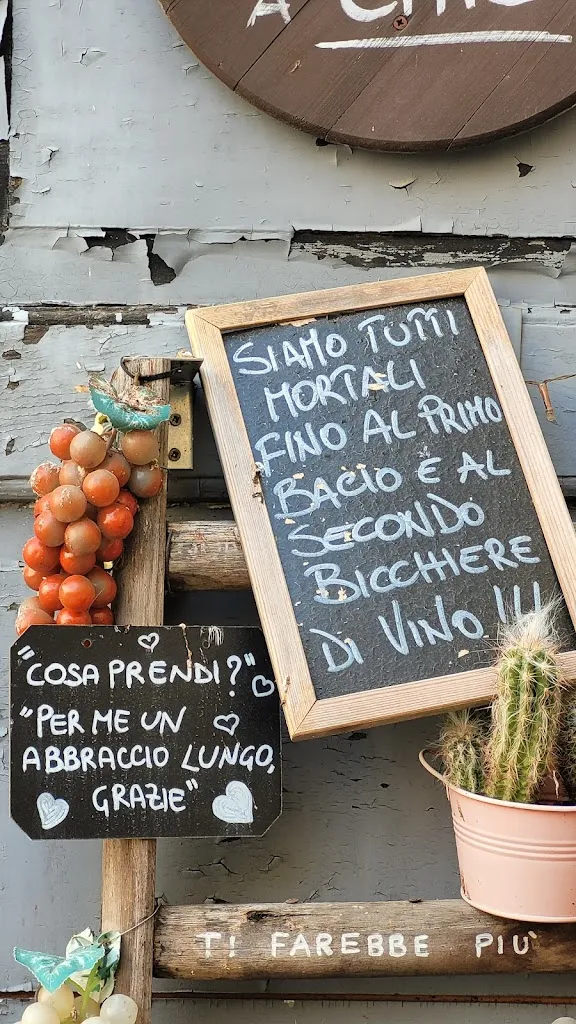 SIAMO TUTTI
MORTALI
FINO AL PRIMO
BACIO E AL
SECONDO
BICCHIERE
DI VINO !!!
"COSA PRENDI?"
"PER ME UN
ABBRACCIO LUNGO,
GRAZIE"
TI FAREBBE PIÙ